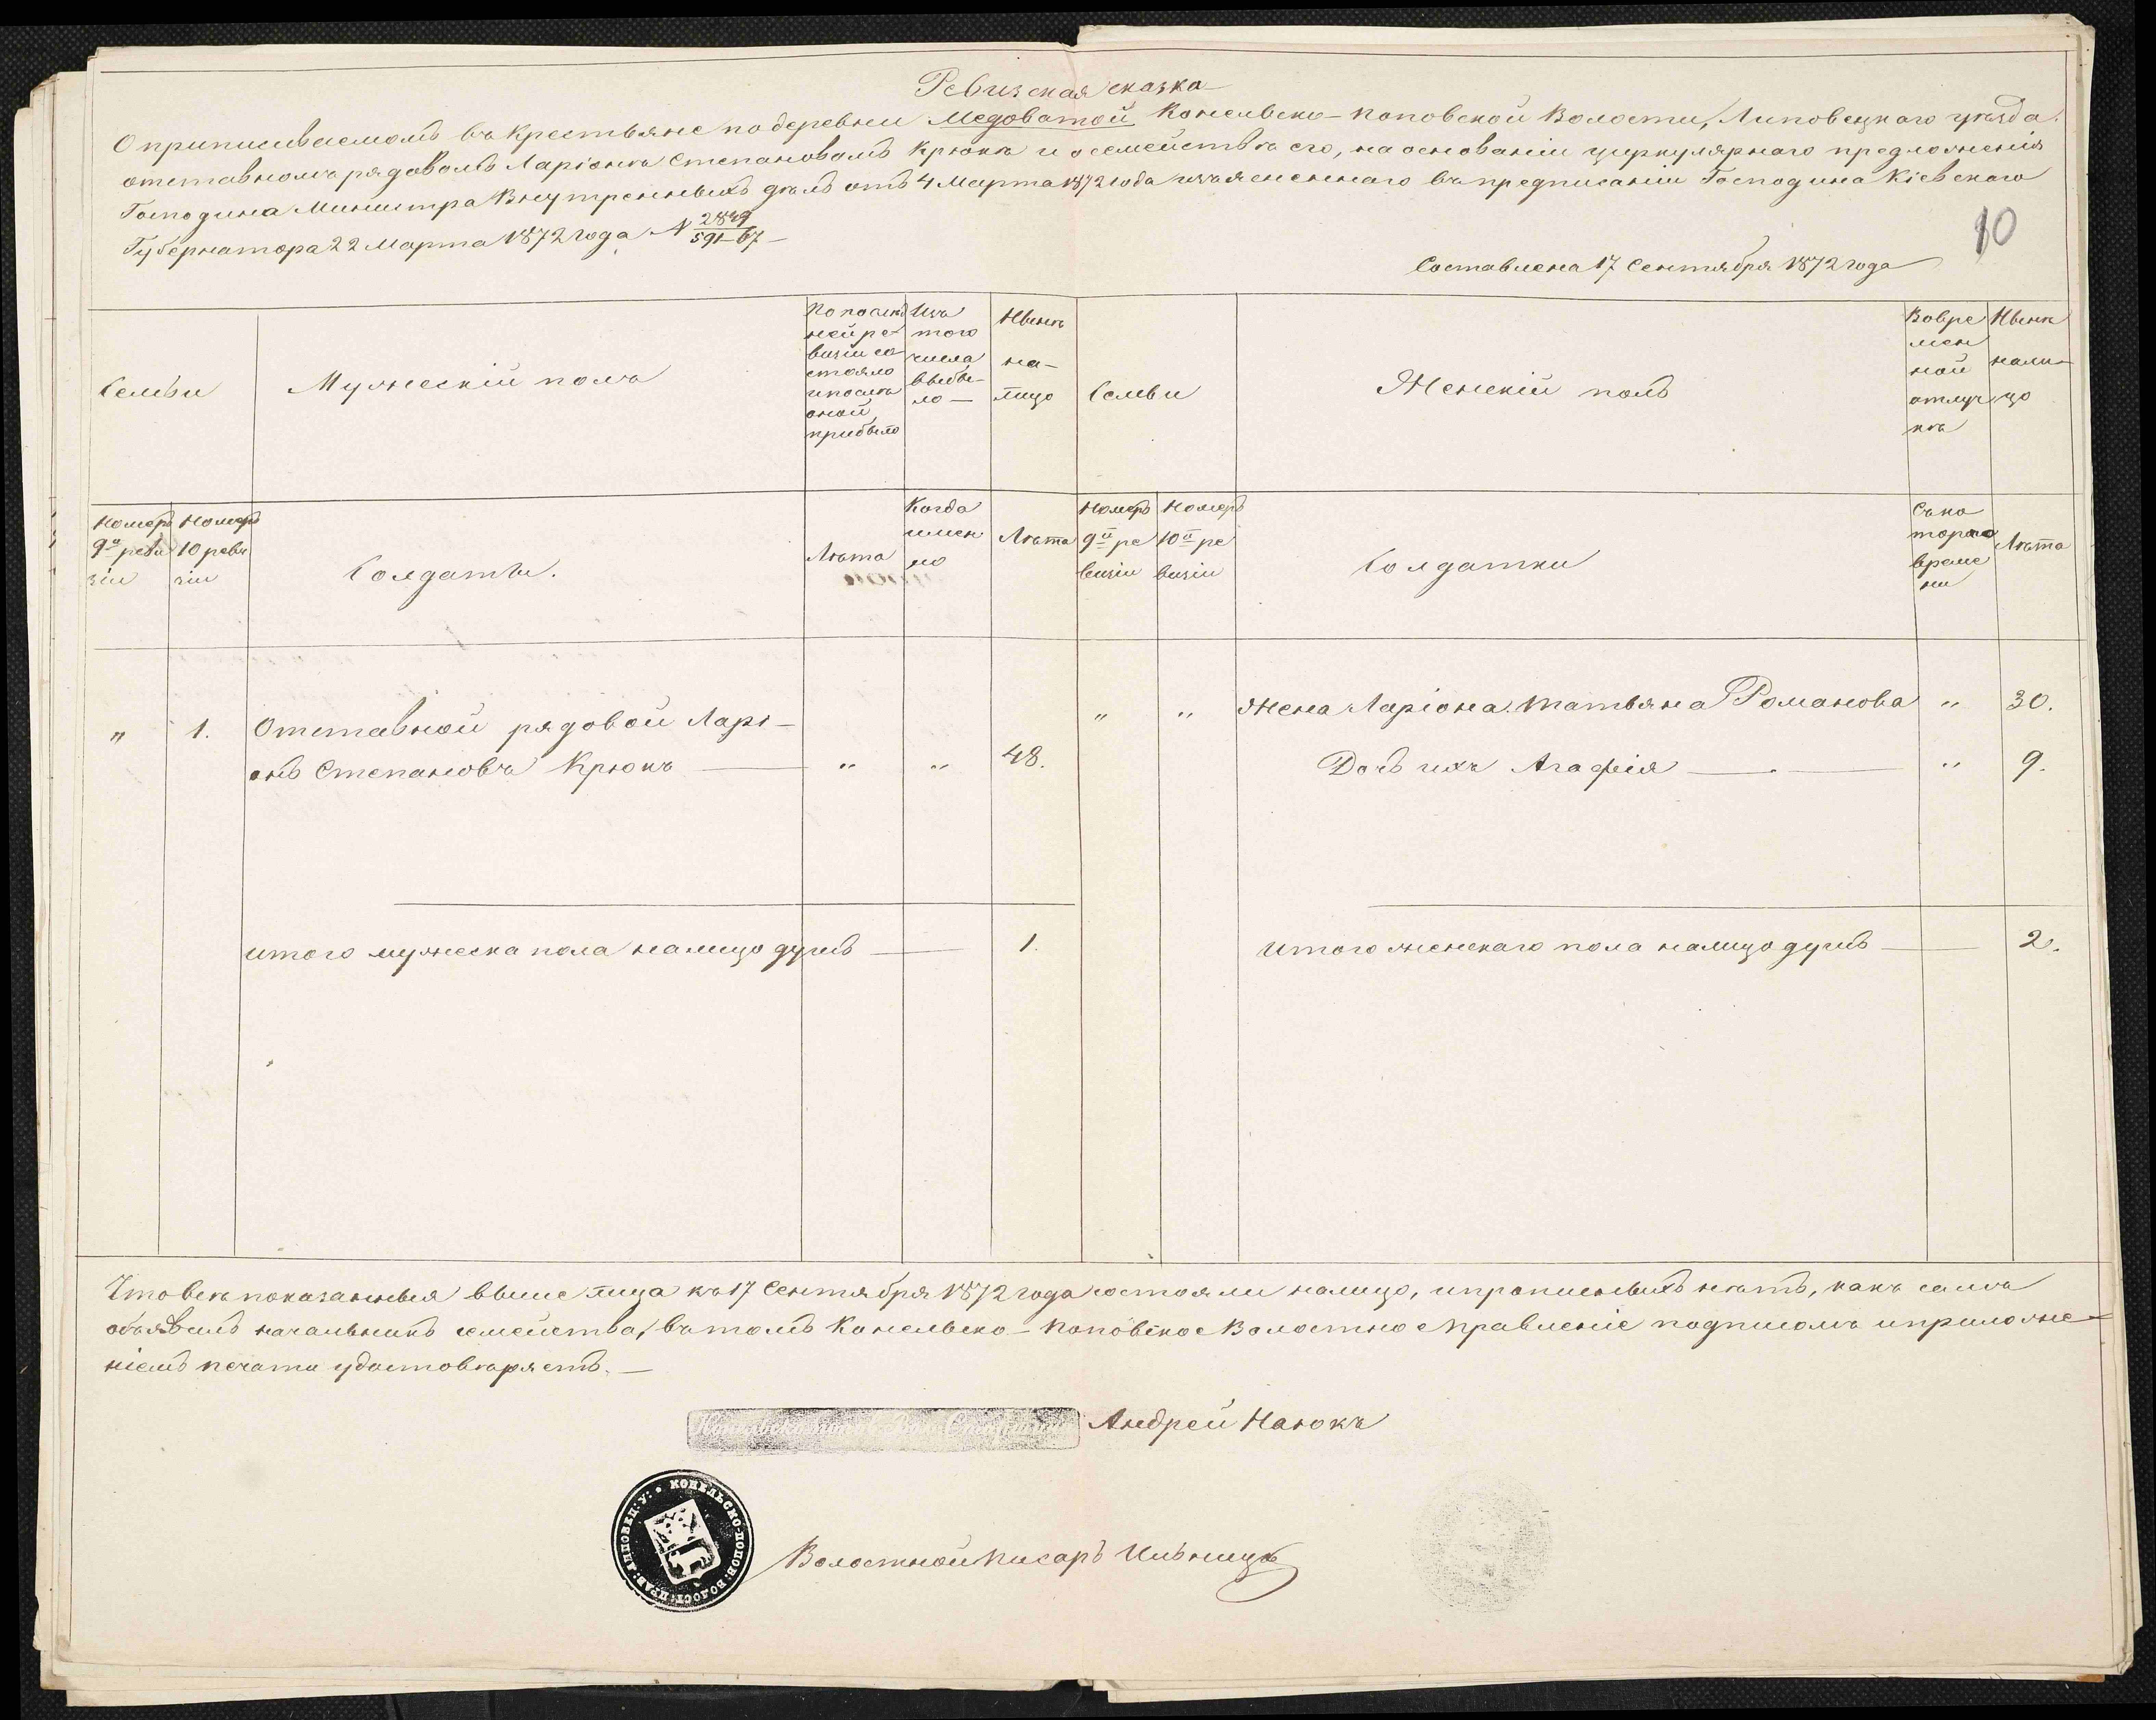 Ревизская сказка
О приписываемомъ въ крестьяне по деревни Медоватой Конельско-Поповской Волости, Липовецкаго уѣзда.
отставномъ рядовомъ Ларіонѣ Степановомъ Крюкѣ и о семействѣ его, на основаніи циркулярнаго предложенія
Господина Министра Внутреннихъ дѣлъ отъ 4 Марта 1872 года изъясненнаго въ предписаніи Господина Кіевскаго
Губернатора 22 Марта 1872 года N 2849/591-67 —
10
Составлена 17 Сентября 1872 года
Семьи
Мужескій полъ
По послѣд
ней ре
визіи со
стояло
и послѣ
оной
прибыло
Изъ
того
числа
выбы-
ло —
Нынѣ
на-
лицо
Семьи
Женскій полъ
Вовре
мен
ной
отлуч
кѣ
Нынѣ
нали-
цо
Номеръ
9й реви
зіи
Номеръ
10 реви
зіи
Солдаты.
Лѣта
Когда
имен
но
Лѣта
Номеръ
9й ре
визіи
Номеръ
10й ре
визіи
Солдатки
Съ ко
тораго
време
ни
Лѣта
" 1. Отставной рядовой Ларі-
онъ Степановъ Крюкъ — " " 48.
" " Жена Ларіона Татьяна Романова " 30.
Дочь ихъ Агафія — " 9.
Итого мужеска пола налицо душъ — 1.
Итого женскаго пола налицо душъ — 2.
Что всѣ показанныя выше лица къ 17 Сентября 1872 года состояли налицо, и прописныхъ нѣтъ, какъ самъ
объявилъ начальникъ семейства, въ томъ Конельско-Поповское Волостное Правленіе подписомъ и приложе-
ніемъ печати удостовѣряетъ. —
Андрей Наюкъ
КОНЕЛЬСКО-ПОПОВ: ВОЛОСТ: ПРАВ: ЛИПОВЕЦ: У:
Волостной Писарь